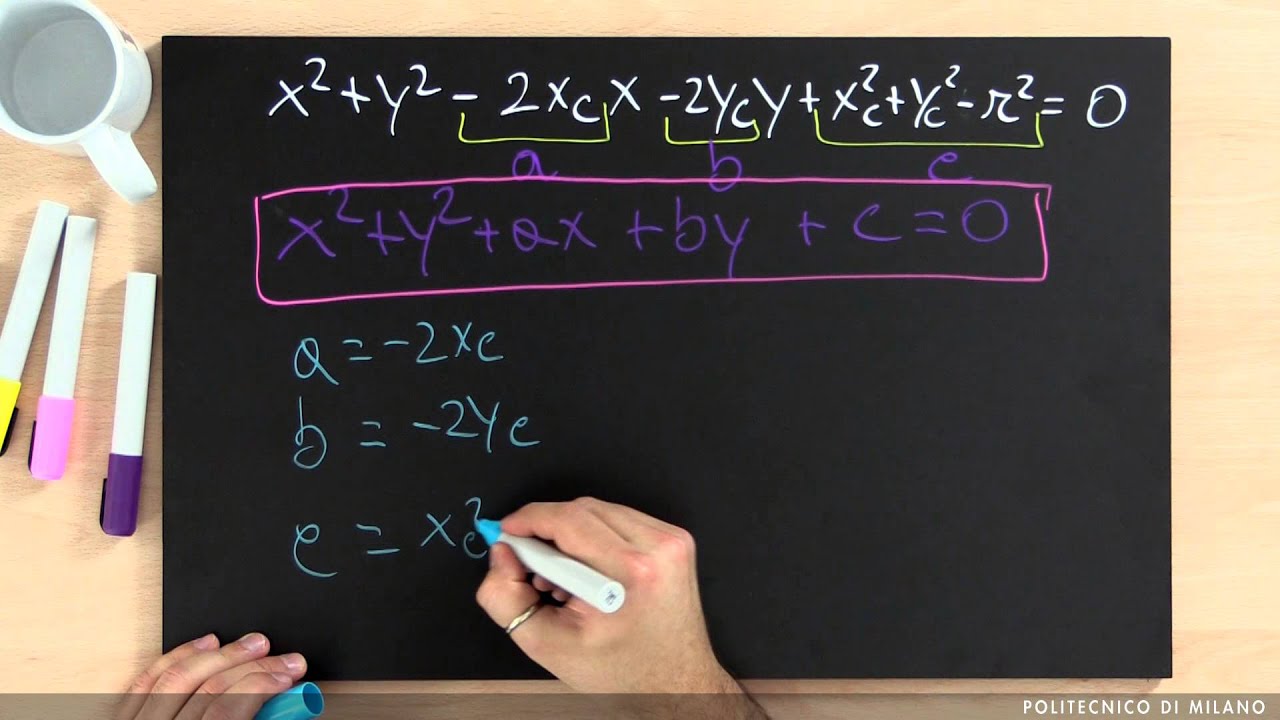 x²+y²-2x_c x-2y_c y+x_c²+y_c²-r²=0
a b c
x²+y²+ax+by+c=0
a=-2x_c
b=-2y_c
c=x_c²
POLITECNICO DI MILANO